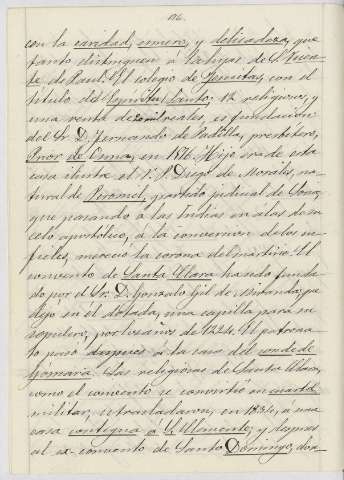 con la caridad, esmero, y delicadeza, que
tanto distinguen a las hijas de S. Vicen-
te de Paul. El colegio de Jesuitas, con el
título del Espíritu Santo, 12 religiosos, y
una renta de 2000 reales, es fundación
del Sr. D. Fernando de Padilla, presbítero,
Prior de Osma, en 1576. Hijo era de esta
casa ilustre el V. P. Diego de Morales, na-
tural de partido judicial de Soria,
que pasando á las Indias en alas de su
celo apostólico, á la conversion de los in-
fieles, mereció la corona del martirio. El
convento de Santa Clara ha sido funda-
do por el Sr. D. Gonzalo Gil de Miranda, que
dejo en el dotada, una capilla para su
sepulcro, por los años de 1224. El patrona-
to pasó despues á la casa del conde de
Gomara. Las religiosas de Santa Clara,
como el convento se convirtió en cuartel
militar, se trasladaron, en 1834, á una
casa contigua á S. Clemente, y despues
al ex-convento de Santo Domingo, don-